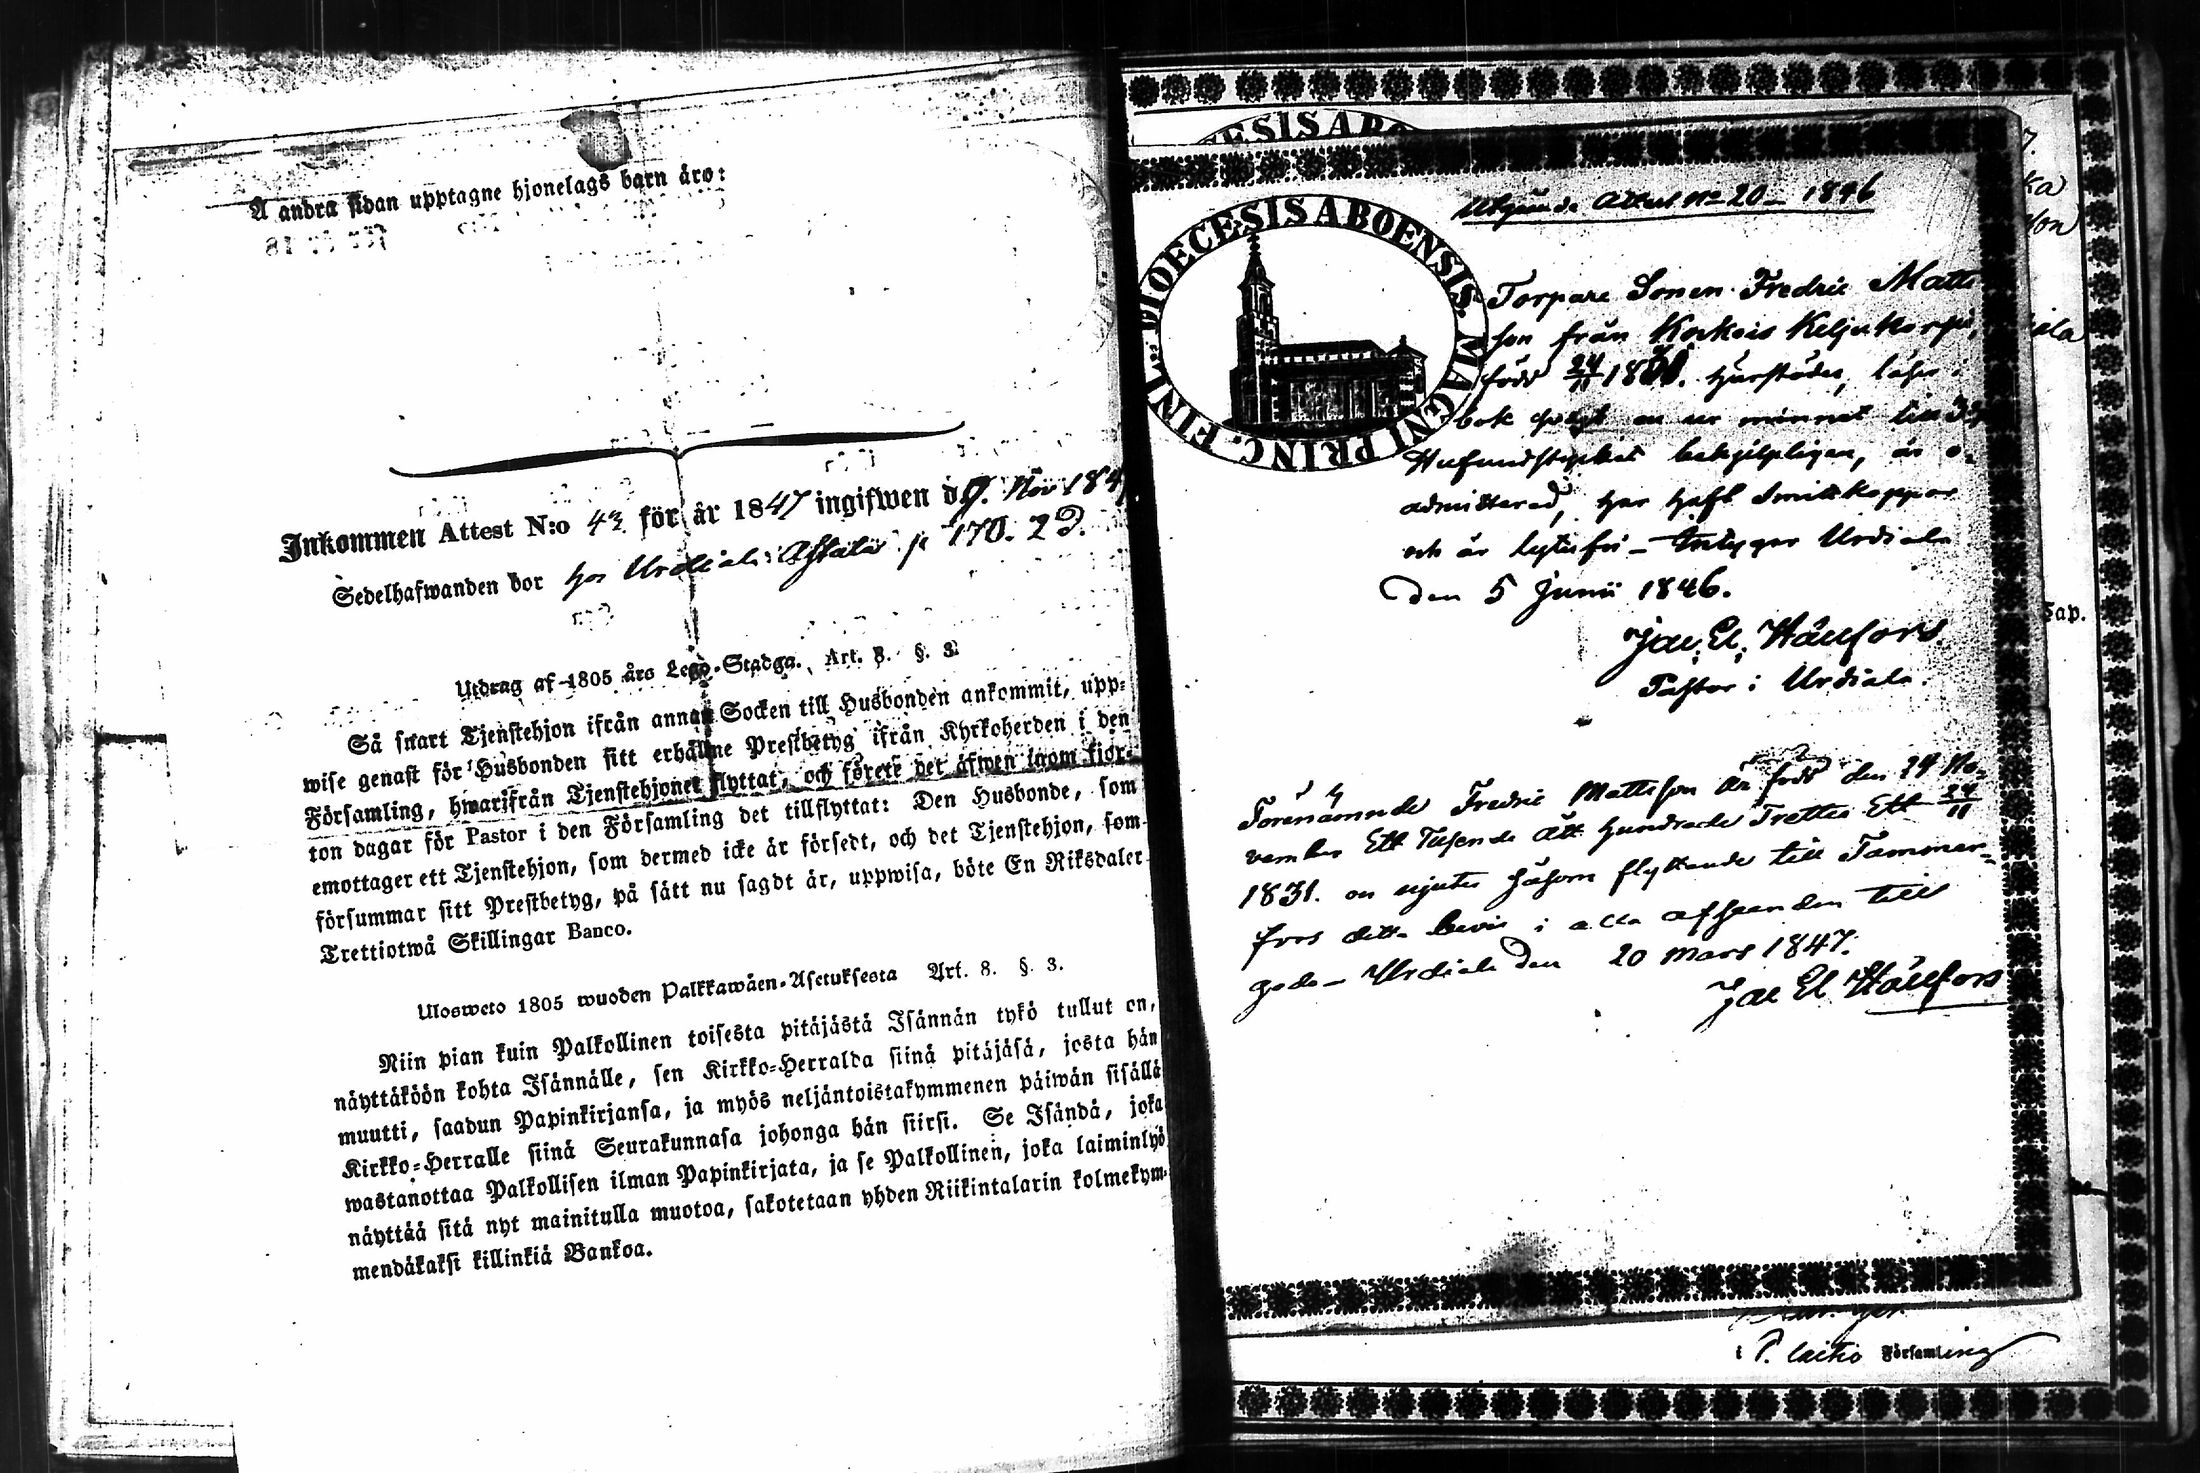 Å andra sidan upptagne hjonelags barn äro:
Inkommen Attest N:o 43 för år 1847 ingifwen d. 7. Nov 184
Sedelhafwanden bor hos Urdiala p 170. 2D.
Utdrag af 1805 års Lego-Stadga. Art. 8. §. 3.
Så snart Tjenstehjon ifrån annan Socken till Husbonden ankommit, upp-
wise genast för Husbonden sitt erhållne Prestbetyg ifrån Kyrkoherden i den
Församling, hwarifrån Tjenstehjonet flyttat, och förete det äfwen inom fjor-
ton dagar för Pastor i den Församling det tillflyttat: Den Husbonde, som
emottager ett Tjenstehjon, som dermed icke är försedt, och det Tjenstehjon, som
försummar sitt Prestbetyg, på sätt nu sagdt är, uppwisa, böte En Riksdaler
Trettiotwå Skillingar Banco.
Ulosweto 1805 wuoden Palkkawäen-Asetuksesta Art. 8. §. 3.
Niin pian kuin Palkollinen toisesta pitäjästä Isännän tykö tullut on,
näyttäköön kohta Isännälle, sen Kirkko-Herralda siinä pitäjäsä, josta hän
muutti, saadun Papinkirjansa, ja myös neljäntoistakymmenen päiwän sisällä
Kirkko-Herralle siinä Seurakunnasa johonga hän siirsi. Se Isändä, joka
wastanottaa Palkollisen ilman Papinkirjata, ja se Palkollinen, joka laiminlyö
näyttää sitä nyt mainitulla muotoa, sakotetaan yhden Riikintalarin kolmekym-
mendäkaksi killinkiä Bankoa.
DIOECESIS ABO
FINL. DIOECESIS ABOENSIS. MAGNI PRINC.
Utgående Attest No 20 - 1846
Torpare Sonen Fredric Matts
son från Korkois Keljukorpi,
född 24/11 1831. Hjurstödes, läser i
bok en ur minnet
Hufvudstycket behjelpligen, är o-
admitterad, har haft Smittkoppor
och är lytesfri - Intygar Urdiala
den 5 Junii 1846.
Jac. El. Hällfors.
Pastor i Urdiala.
Förenämnde Fredric Mattsson är född den 24 No-
vember Ett Tusende Ått hundrade Trettio Ett 24/11
1831. en njute såsom flyttande till Tammer-
fors detta bevis i alla afseenden till
godo - Urdiala den 20 Mars 1847.
Jac El Hällfors
ka
son
ala
Cap.
i P. laitio Församling